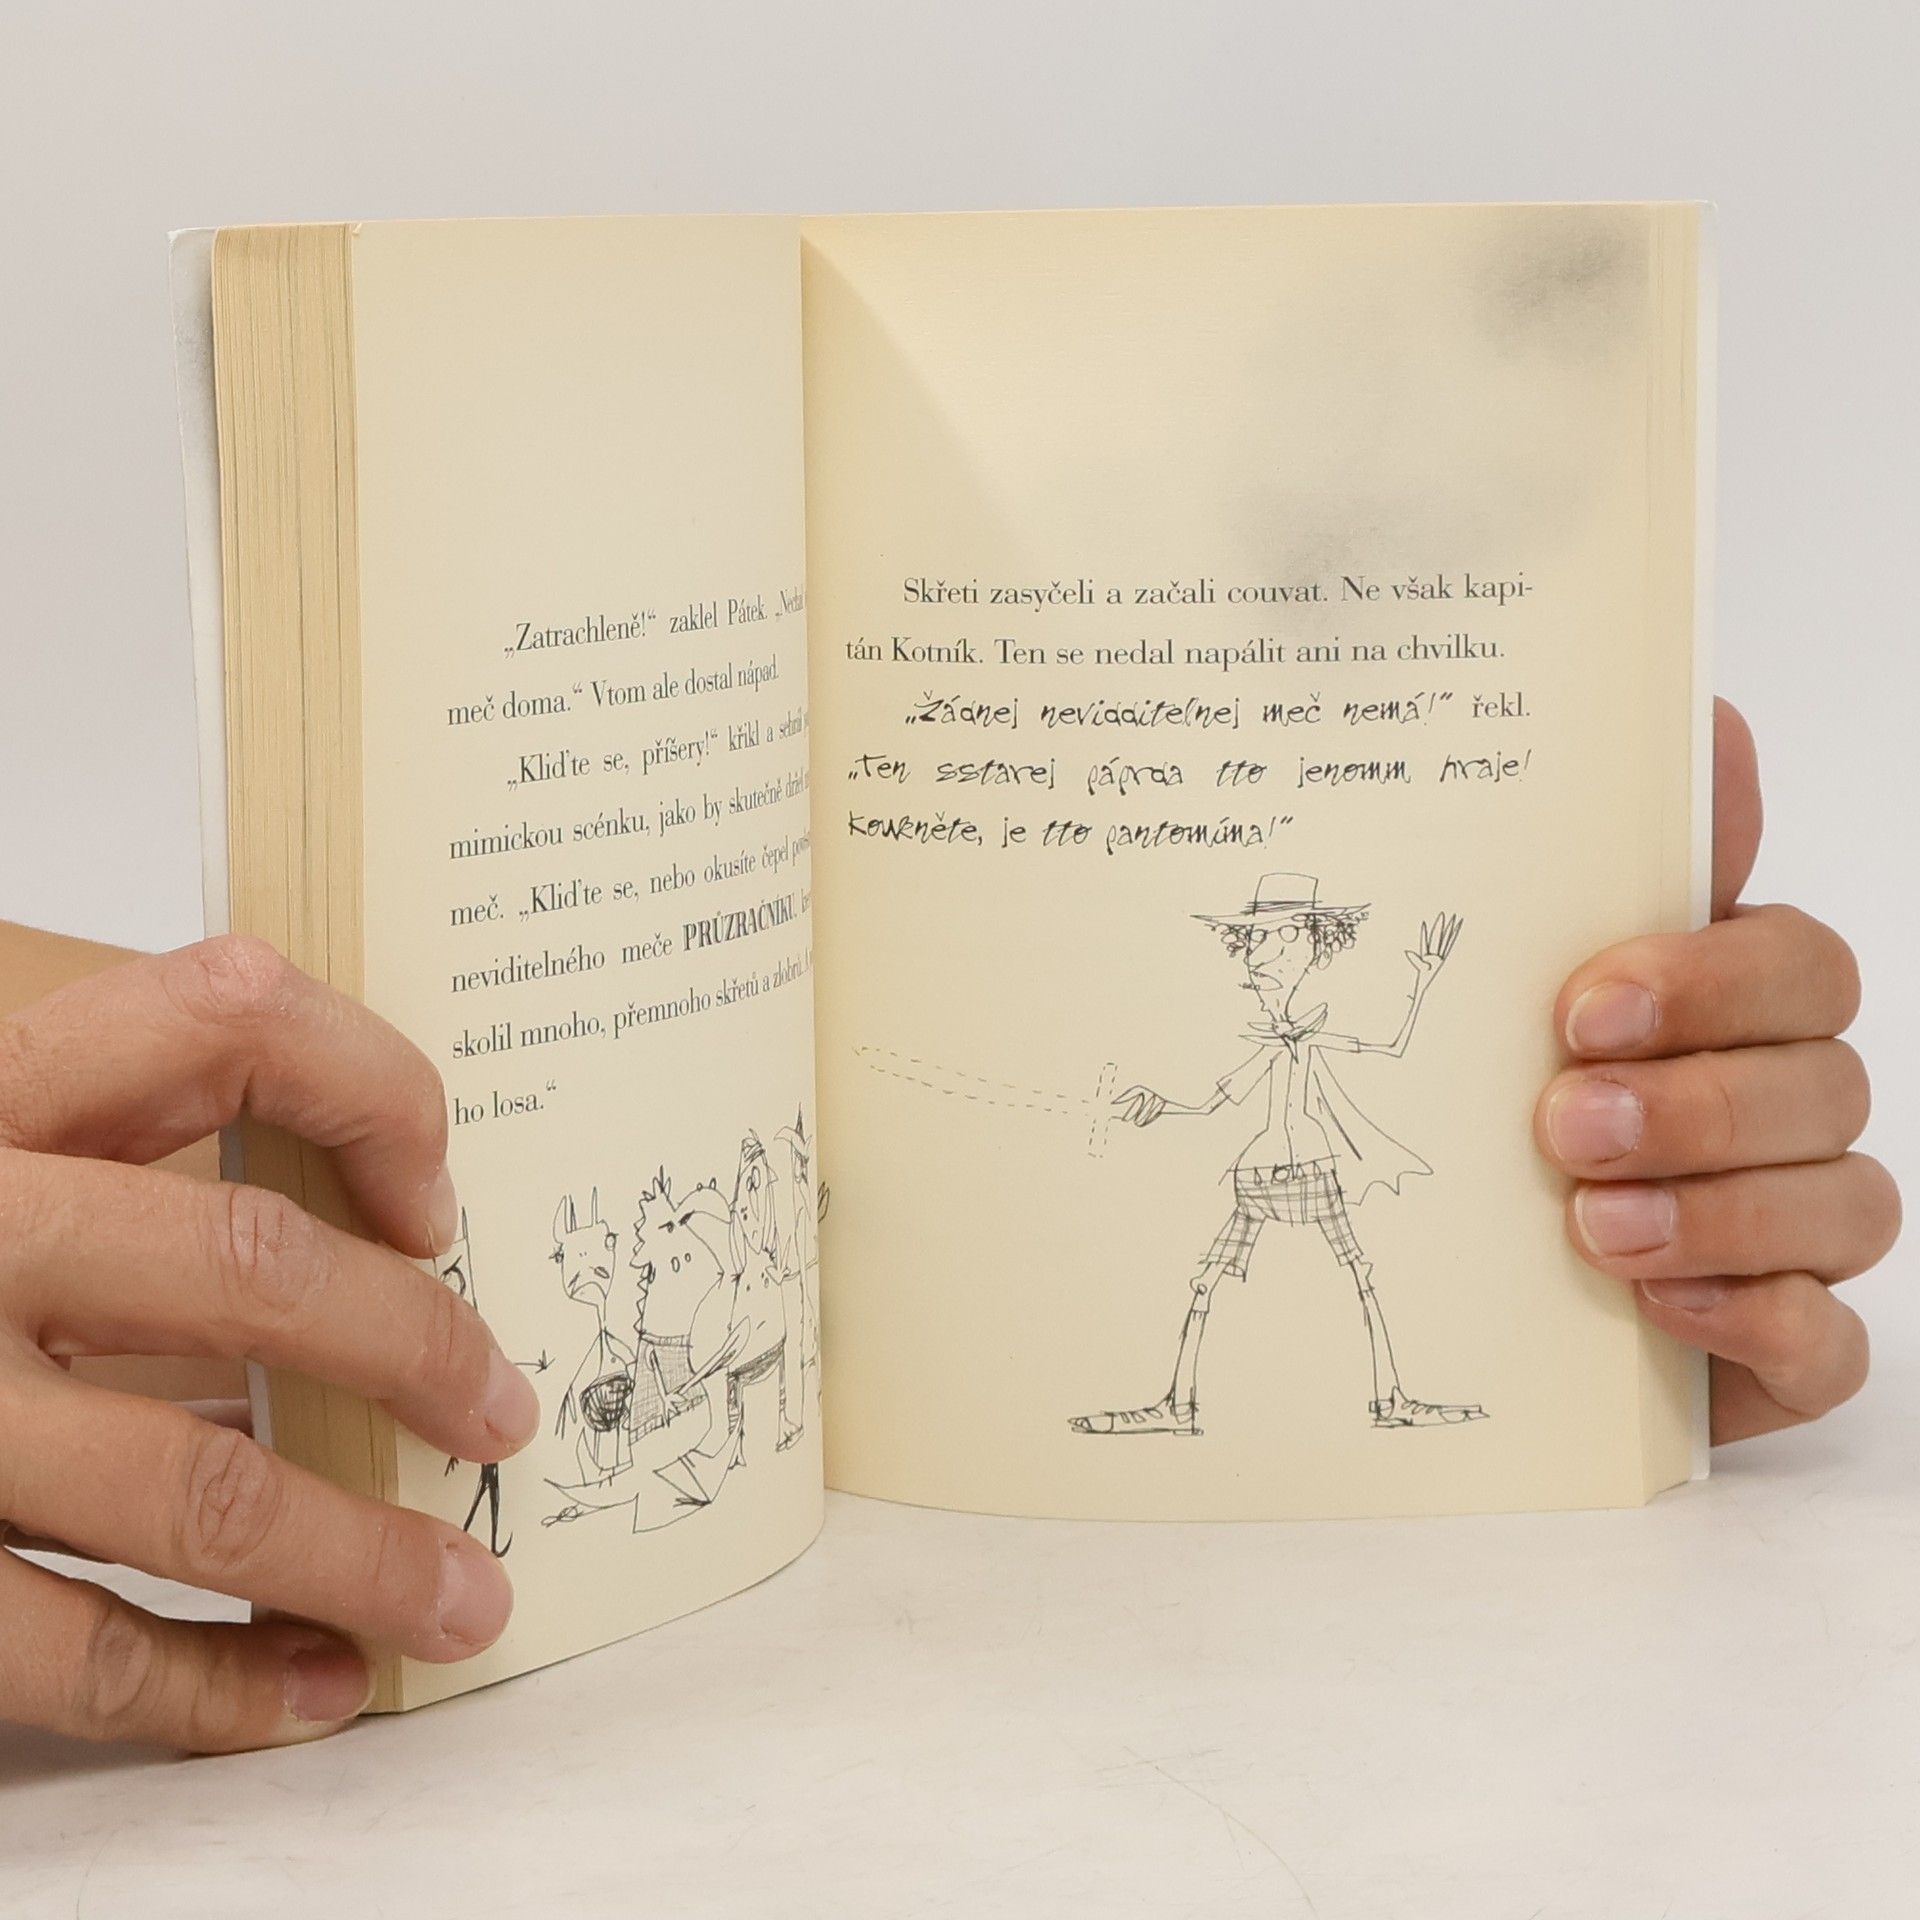 „Zatrachleně!“ zaklel Pátek.
meč doma.“ Vtom ale dostal nápad.
„Kliďte se, příšery!“ křikl a sehrál
mimickou scénku, jako by skutečně držel
meč. „Kliďte se, nebo okusíte čepel
neviditelného meče PRŮZRAČNÍKU,
skolil mnoho, přemnoho skřetů a zlobrů.
ho losa.“
Skřeti zasyčeli a začali couvat. Ne však kapi-
tán Kotník. Ten se nedal napálit ani na chvilku.
„Žádnej nevidditelnej meč nemá!“ řekl.
„Ten sstarej páprda tto jenomm hraje!
Koukněte, je tto pantomíma!“